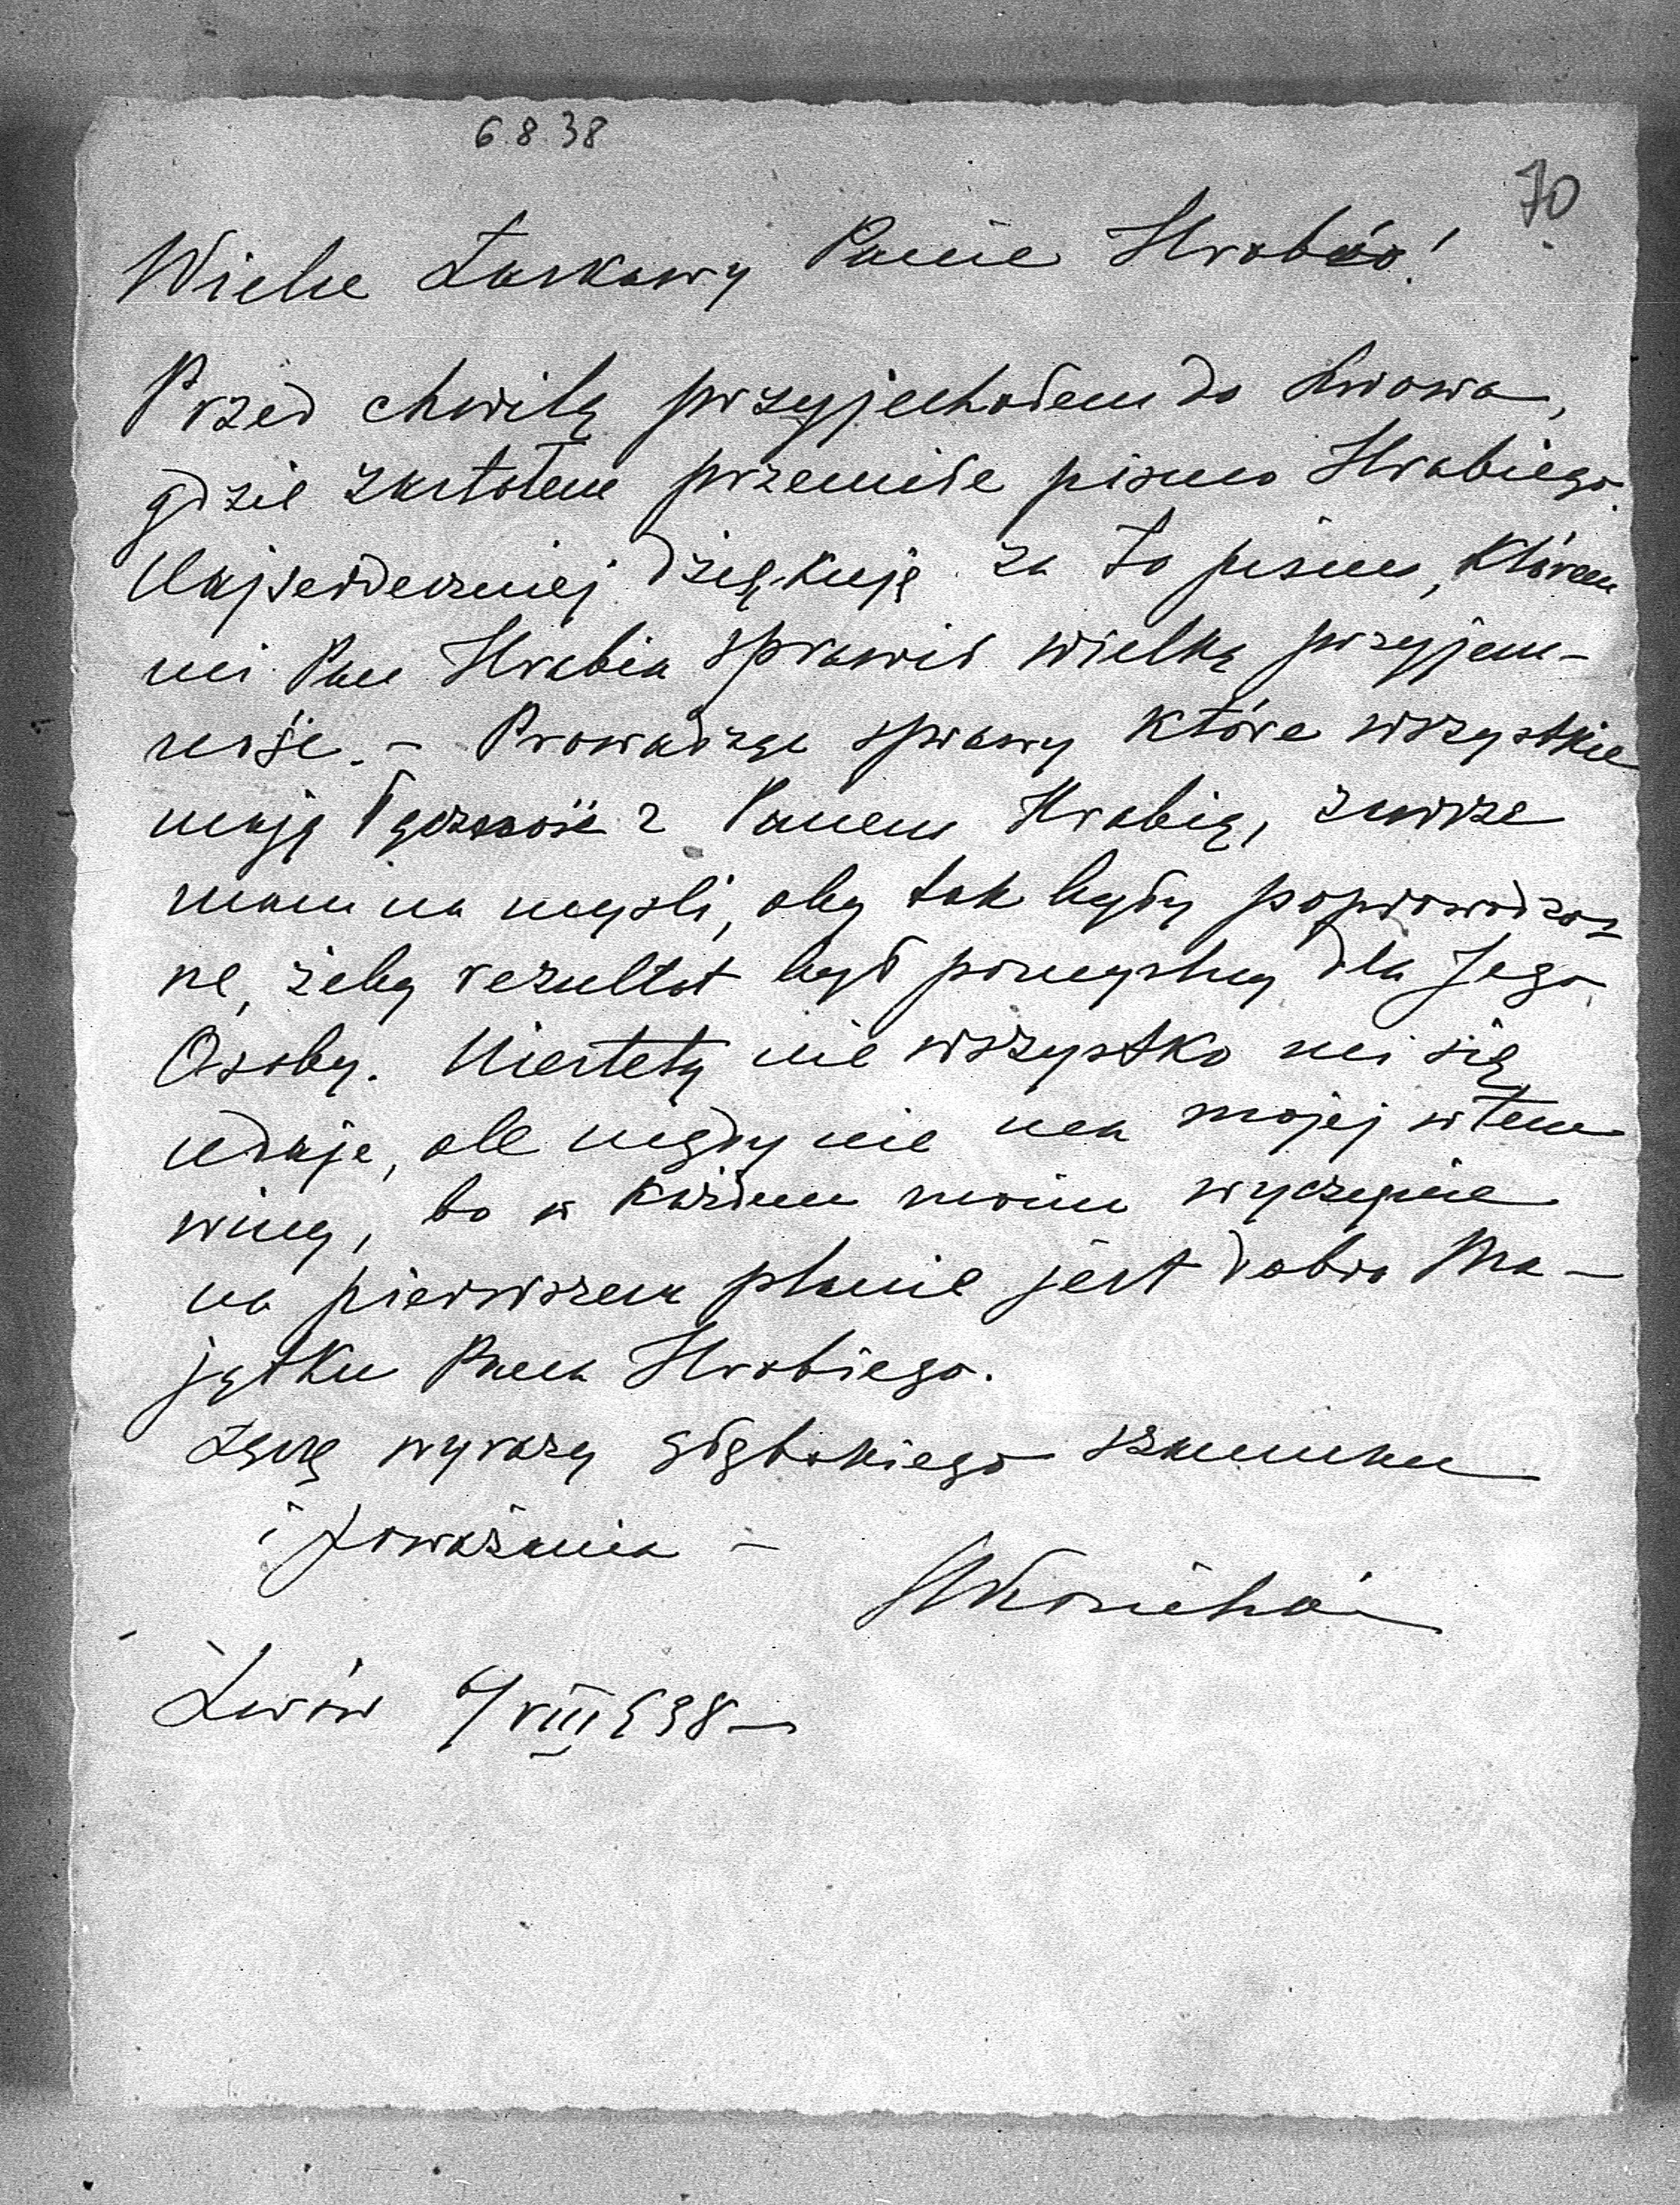 6.8.38
70
Wielce Łaskawy Panie Hrabio!
Przed chwilą przyjechałem do Lwowa,
gdzie zastałem przemiłe pismo Hrabiego.
Najserdeczniej dziękuję za to pismo, którem
mi Pan Hrabia sprawił wielką przyjem-
ność. – Prowadząc sprawy które wszystkie
mają łączność z Panem Hrabią, zawsze
mam na myśli, aby tak były poprowadzo-
ne, żeby rezultat był pomyślny dla Jego
Osoby. Niestety nie wszystko mi się
udaje, ale nigdy nie ma mojej w tem
winy, bo w każdem moim wyczynie
na pierwszem planie jest dobro Ma-
jątku Pana Hrabiego.
Łączę wyrazy głębokiego szacunku
i poważania –
Lwów 6/VIII 938 –